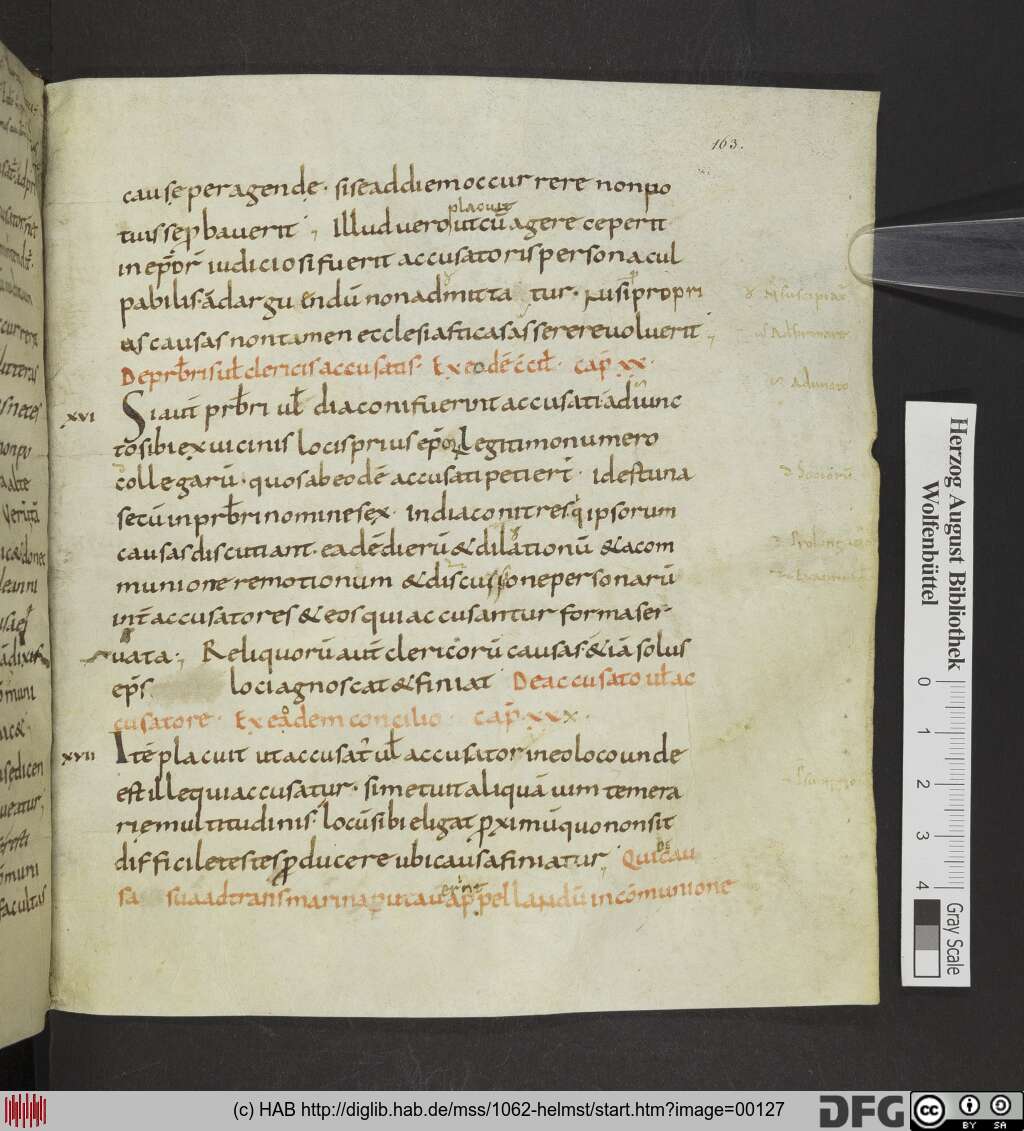 163.
cause peragende · si se ad diem occurrere non po
tuisse p̱bauerit ; Illud uero placuit ut cū agere ceperit
in ep̄or̄ iudicio si fuerit accusatoris persona cul
pabilis · ād arguendū non admittatur · nisi propri
as causas non tamen ecclesiasticas asserere uoluerit ;
De prb̄ris ul̄ clericis accusatis · Ex eodē c̄cil̄ · cap̄ xx ·
xvi Si aut̄ prb̄ri ul̄ diaconi fuerint accusati adiunc
to sibi ex uicinis locis prius ep̄or̄ legitimo numero
collegarū · quos ab eodē accusati petierī · id est una
secū in prb̄ri nomine sex · in diaconi tres q ipsorum
causas discutiant · eadē dierū & dilationū & a com
munione remotionum & discussione personarū
int̄ accusatores & eos qui accusantur forma ser
uata ; Reliquorū aut̄ clericorū causas · & iā solus
ep̄s loci agnoscat & finiat De accusato ul̄ ac
cusatore · Ex eadem concilio · cap̄ · xxx ·
xvii Itē placuit ut accusat̄ ul̄ accusator in eo loco unde
est ille qui accusatur · si metuit aliquā uim temera
rie multitudinis · locū sibi eligat p̱ximū quo non sit
difficile testes p̱ducere ubi causa finiatur ; Qui cau
sa sua ad transmarina putau appellandū in cōmunione
Herzog August Bibliothek
Wolfenbüttel
0 1 2 3 4
Gray Scale
(c) HAB http://diglib.hab.de/mss/1062-helmst/start.htm?image=00127
DFG
cc BY SA